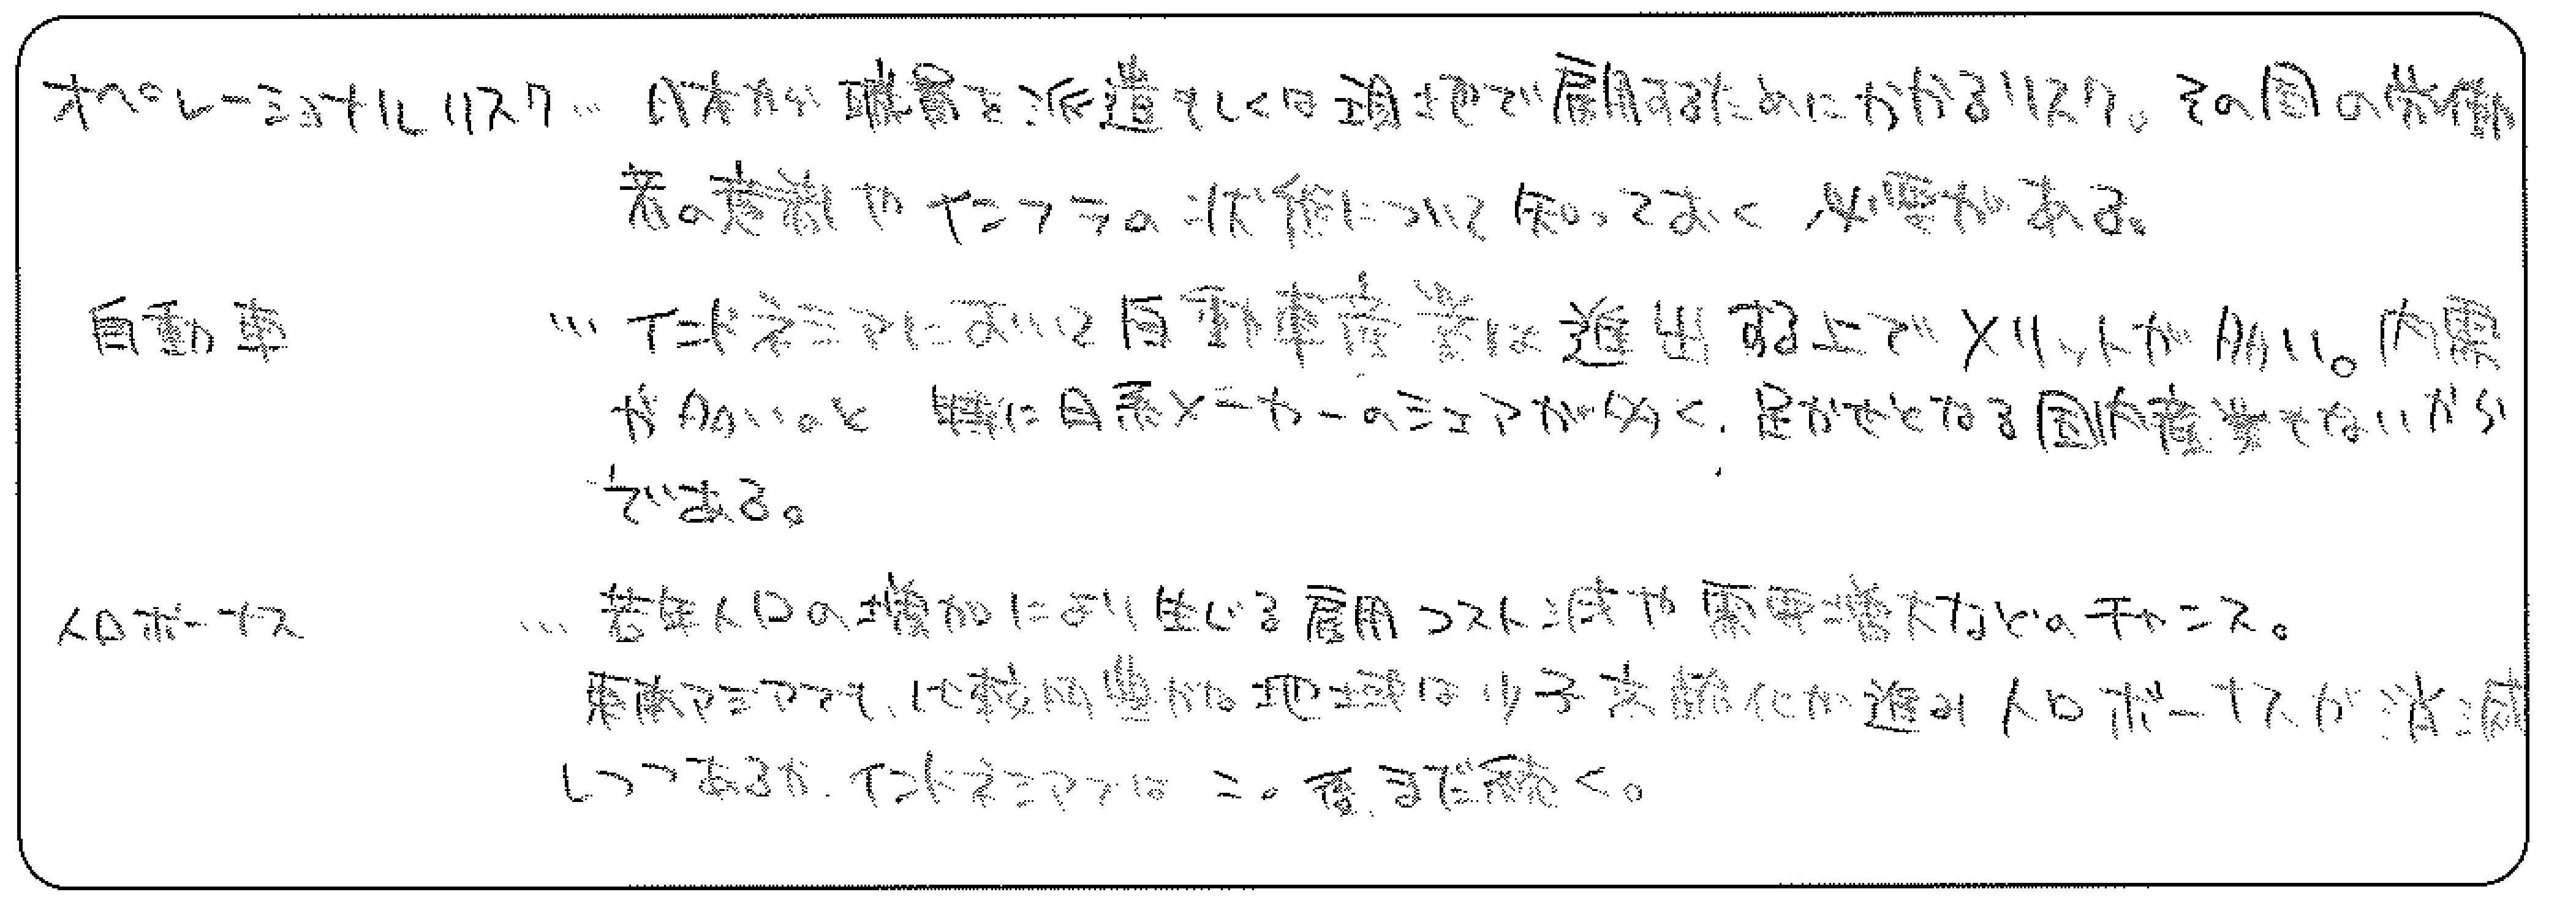 オペレーショナルリスク… 日本から職員を派遣もしくは現地で雇用するためにかかるリスク。その国の労働
者の意識やインフラの状態について知っておく必要がある。
自動車 … インドネシアにおいて自動車産業は進出する上でメリットが多い。内需
が多いのと 特に日系メーカーのシェアが多く、足かせとなる国内産業もないから
である。
人口ボーナス … 若年人口の増加により生じる雇用コスト減や需要増大などのチャンス。
東南アジアでも、比較的豊かな地域は少子高齢化が進み人口ボーナスが消滅
しつつあるが、インドネシアでは この後、まだ続く。